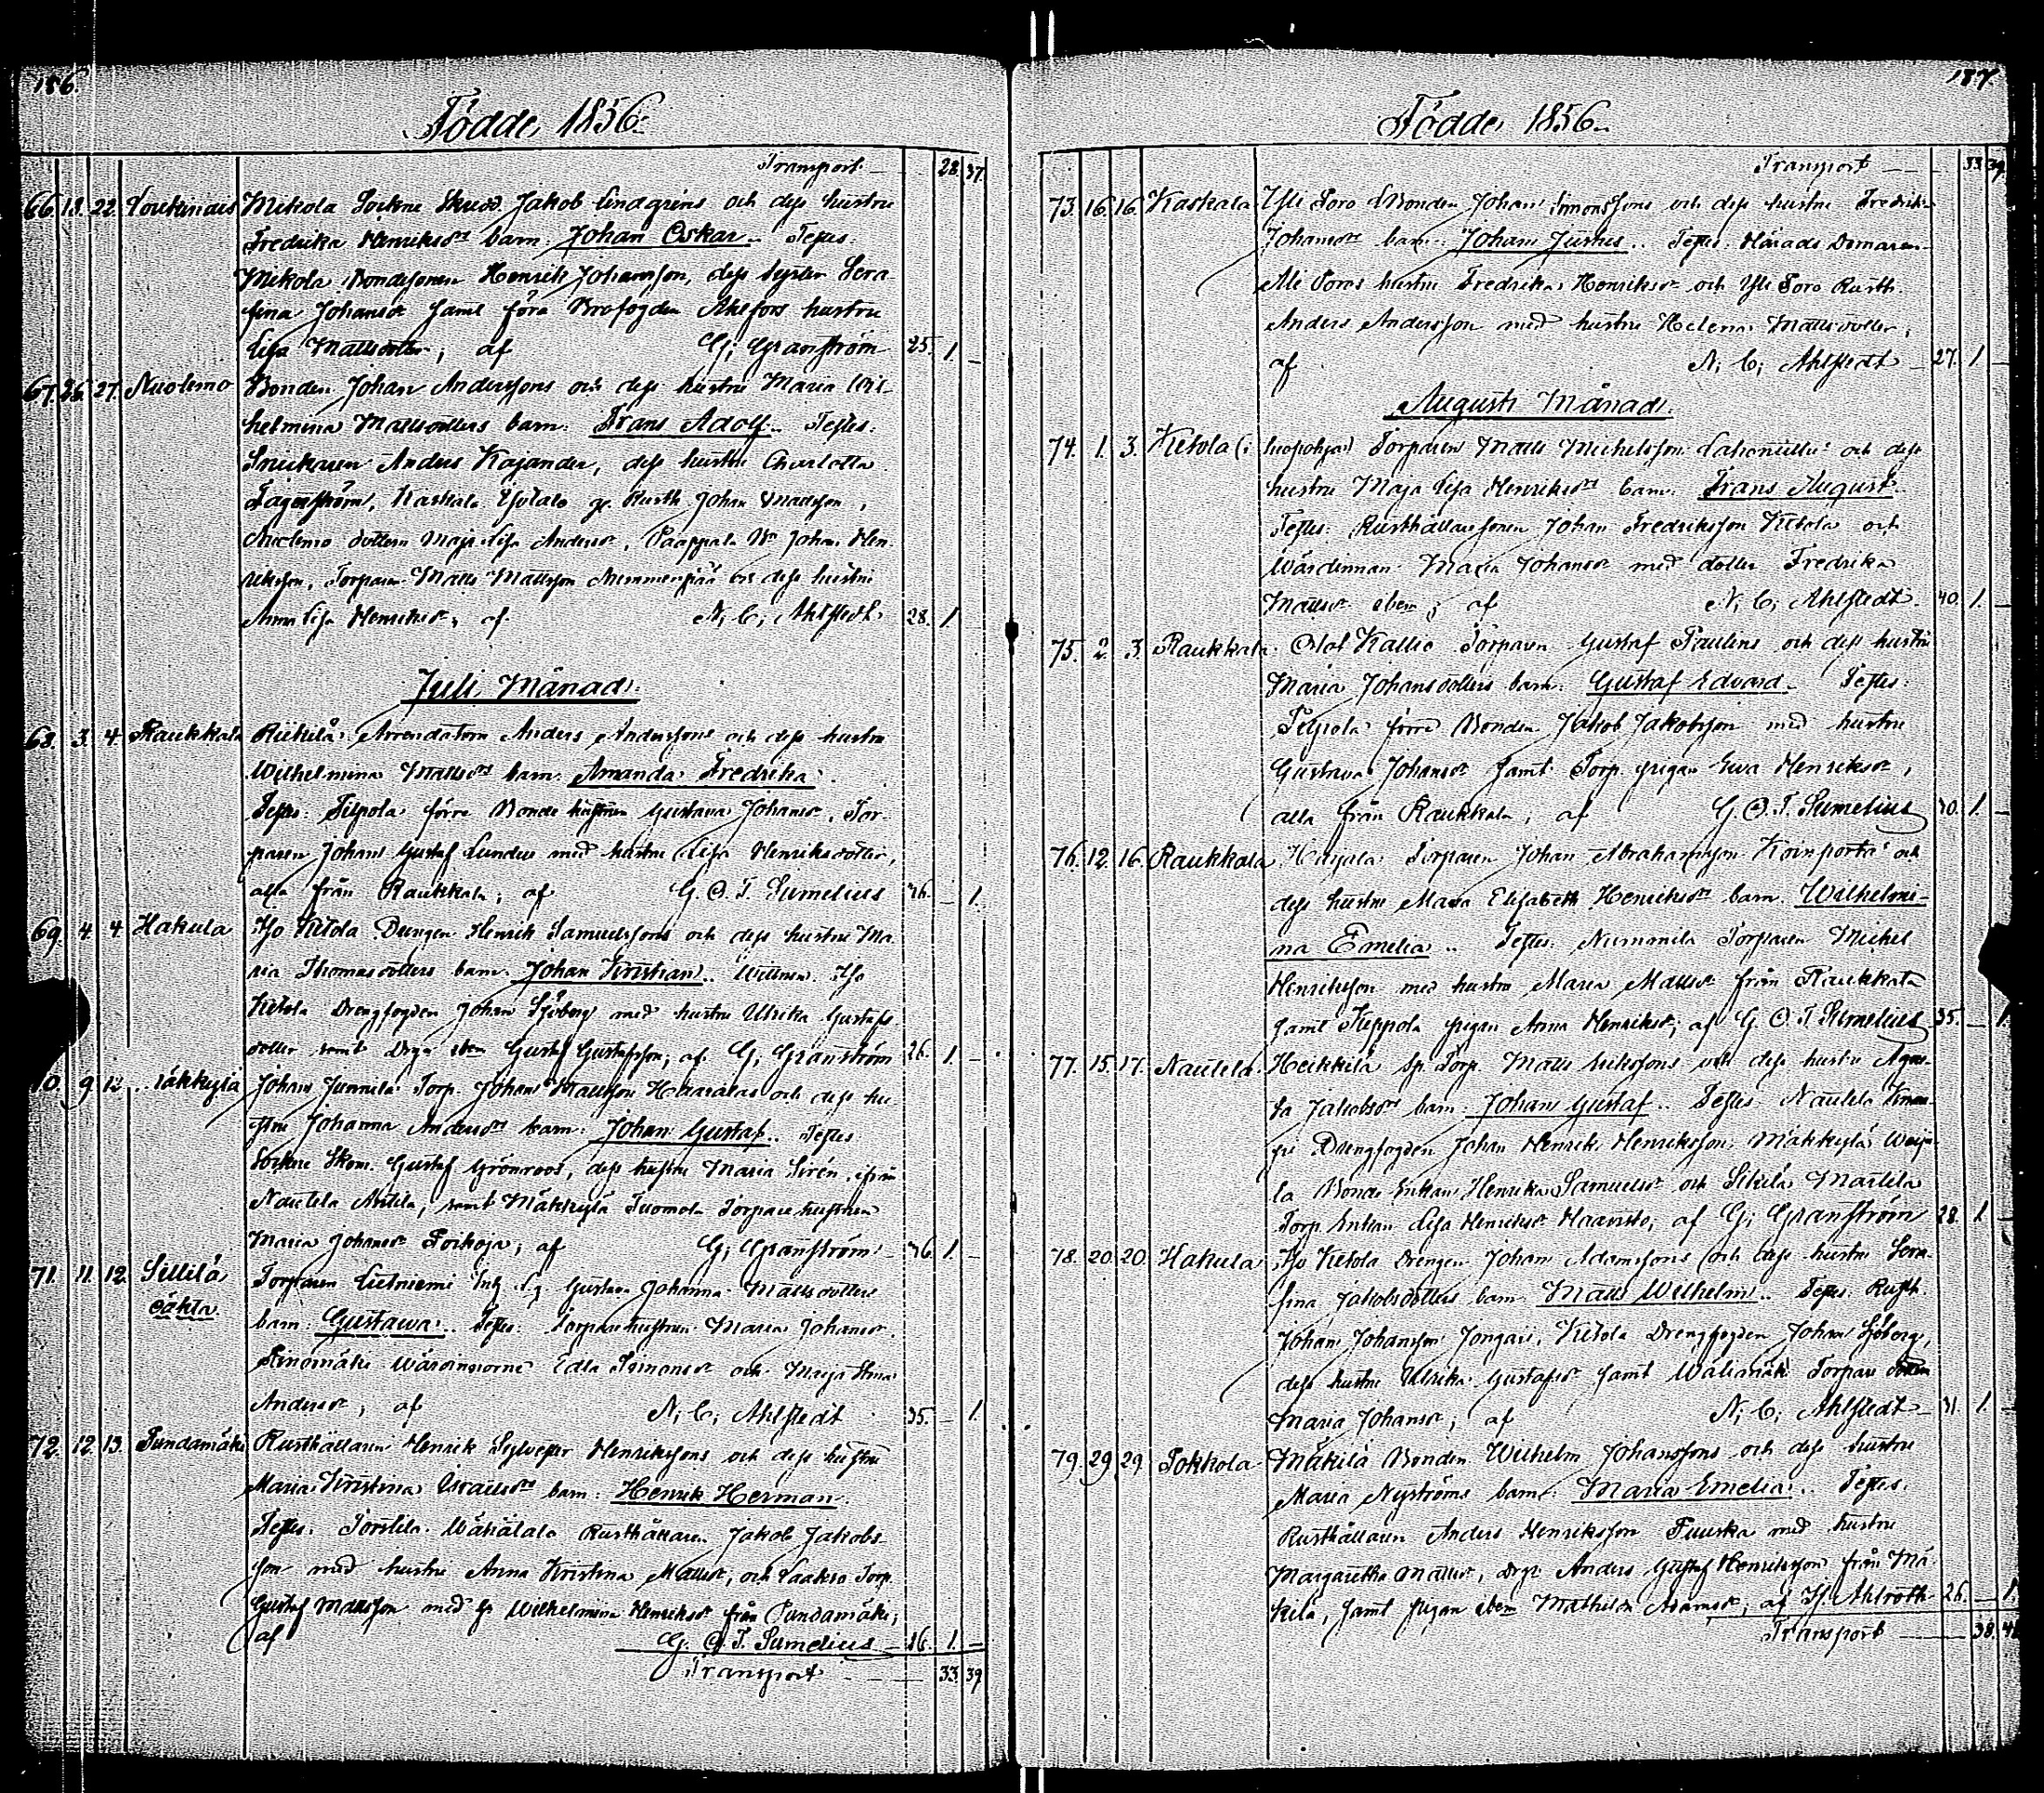 186.
Födde, 1856.
Transport 28. 37.
66. 18. 22. Mikola Sockne Jakob Lindgrens och dess hustru
Fredrika Henriksdrs barn: Johan Oskar. Testes:
Mikola Bondesonen Henrik Johansson, dess syster Sera
fina Johansdr samt förra Brofogden Ahlfors hustru
Lisa Mattsdotter; af G; Granström 25. 1. –
67. 26. 27. Nuolemo Bonden Johan Anderssons och dess hustru Maria Wil-
helmina Mattsdotters barn: Frans Adolf. Testes:
Snickaren Anders Kajander, dess hustru Charlotta
Fagerström, Kaskala Johan
Nuolemo dottern Maja Lisa Andersdr, Paappala Johan Hen-
riksson, Torparen Matts Mattsson Nummenpää och dess hustru
Anna Lisa Henriksdr; af N; C; Ahlstedt 28. 1
Juli Månad.
68. 3. 4. Raukkala Riikilä Arrendatorn Anders Anderssons och dess hustru
Wilhelmina Mattsdrs barn: Amanda Fredrika.
Testes: Silpola förre Bonde hustrun Gustava Johansdr, Tor-
paren Johan Gustaf Lundee med hustru Lisa Henriksdotter,
alla från Raukkala; af G. O. T. Sumelius 26. – 1.
69. 4. 4. Hakula Iso Kitola Drengen Henrik Samuelssons och dess hustru Ma
ria Thomasdotters barn: Johan Kristian. Wittnen: Iso
Kitola Drengfogden Johan Sjöberg med hustru Ulrika Gustafs
dotter samt Drgn ibm Gustaf Gustafsson; af G; Granström 26. 1. –
70. 9. 12. Mäkkylä Johan Junnila Torp. Johan Mattsson Haavalas och dess hu
stru Johanna Andersdrs barn: Johan Gustaf. Testes:
Sockne Skom. Gustaf Grönroos, dess hustru Maria Sirén, ifrån
Nautela Anttila, samt Mäkkylä Tuomola Torpare hustrun
Maria Johansdr Poikoja; af G; Granström 36. 1. –
71. 11. 12. Sillilä Torparen Gustava Johanna Mattsdotters
oäkta barn: Gustawa. Testes: Torpare hustrun Maria Johansdr
Wärdinnorne Edla Simonsdr och Maija Stina
Andersdr; af N; C; Ahlstedt 35. – 1.
72. 12. 13. Pundamäki Rusthållaren Henrik Sylvester Henrikssons och dess hustru
Maria Kristina Israelsdrs barn: Henrik Herman.
Testes: Torttila Wähätalo Rusthållaren Jakob Jakobs-
son med hustru Anna Kristina Mattsdr, och Laakso Torp.
Gustaf Mattsson med h. Wilhelmina Henriksdr från Pundamäki;
af G. O. T. Sumelius 26. 1. –
Transport 33. 39
187.
Födde, 1856.
Transport 33. 39
73. 16. 16. Kaskala Yli Soro Bonden Johan Simonssons och dess hustru Fredrika
Johansdrs barn: Johan Justus. Testes: Härads Domaren
Ali Soros hustru Fredrika Henriksdr och Yli Soro Rusth.
Anders Andersson med hustru Helena Mattsdotter;
af N; C; Ahlstedt 27. 1. –
Augusti Månad.
74. 1. 3. Kitola (i Torparen Matts Michelsson och dess
hustru Maja Lisa Henriksdrs barn: Frans August.
Testes: Rusthållaresonen Johan Fredriksson Kitola och
Wärdinnan Maria Johansdr med dotter Fredrika
Mattsdr ibm; af N; C; Ahlstedt 40. 1. –
75. 2. 3. Raukkala Olof Kallio Torparen Gustaf Paulins och dess hustru
Maria Johansdotters barn: Gustaf Edvard. Testes:
Silpola förre Bonden Jakob Jakobsson med hustru
Gustava Johansdr samt Torp. pigan Ewa Henriksdr,
alla från Raukkala; af G. O. T. Sumelius 30. 1. –
76. 12. 16. Raukkala Harjala Torparen Johan Abrahamsson och
dess hustru Maria Elisabeth Henriksdrs barn: Wilhelmi-
na Emelia. Testes: Nummila Torparen Michel
Henriksson med hustru Maria Mattsdr från Raukkala
samt Seppola pigan Anna Henriksdr; af G. O. T. Sumelius 35. – 1.
77. 15. 17. Nautela Heikkilä Sp. Torp. Matts Erikssons och dess hustru Aga-
ta Jakobsdrs barn: Johan Gustaf. Testes: Nautela
Drengfogden Johan Henrik Henriksson, Mäkkylä
Bonde Enkan Henrika Samuelsdr och Sikilä Marttila
Torp. Enkan Lisa Henriksdr Haavisto; af G; Granström 28. 1. –
78. 20. 20. Hakula Iso Kitola Drengen Johan Adamssons och dess hustru Sera-
fina Jakobsdotters barn: Matts Wilhelm. Testes: Rusth.
Johan Johansson Jongari, Kitola Drengfogden Johan Sjöberg,
dess hustru Ulrika Gustafsdr samt Wälimäki Torpare dottern
Maria Johansdr; af N; C; Ahlstedt 31. 1. –
79. 29. 29. Pokkola Mäkilä Bonden Wilhelm Johanssons och dess hustru
Maria Nyströms barn: Maria Emelia. Testes:
Rusthållaren Anders Henriksson Puuska med hustru
Margaretha Mattsdr, drgn Anders Gustaf Henriksson från Mä-
kilä, samt pigan ibm Mathilda Adamsdr; af Hj. Ahlroth 26. – 1.
Transport 38. 41